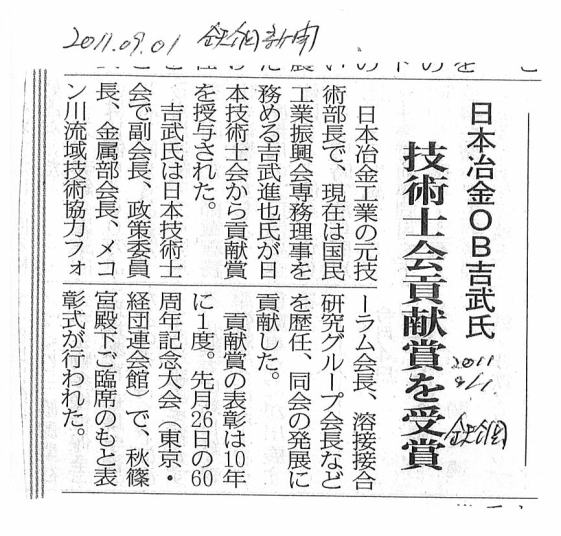 2011.09.01 鉄鋼新聞
日本冶金OB吉武氏
技術士会貢献賞を受賞
2011
9/1
鉄鋼
日本冶金工業の元技
術部長で、現在は国民
工業振興会専務理事を
務める吉武進也氏が日
本技術士会から貢献賞
を授与された。
吉武氏は日本技術士
会で副会長、政策委員
長、金属部会長、メコ
ン川流域技術協力フォ
ーラム会長、溶接接合
研究グループ会長など
を歴任、同会の発展に
貢献した。
貢献賞の表彰は10年
に1度。先月26日の60
周年記念大会（東京・
経団連会館）で、秋篠
宮殿下ご臨席のもと表
彰式が行われた。